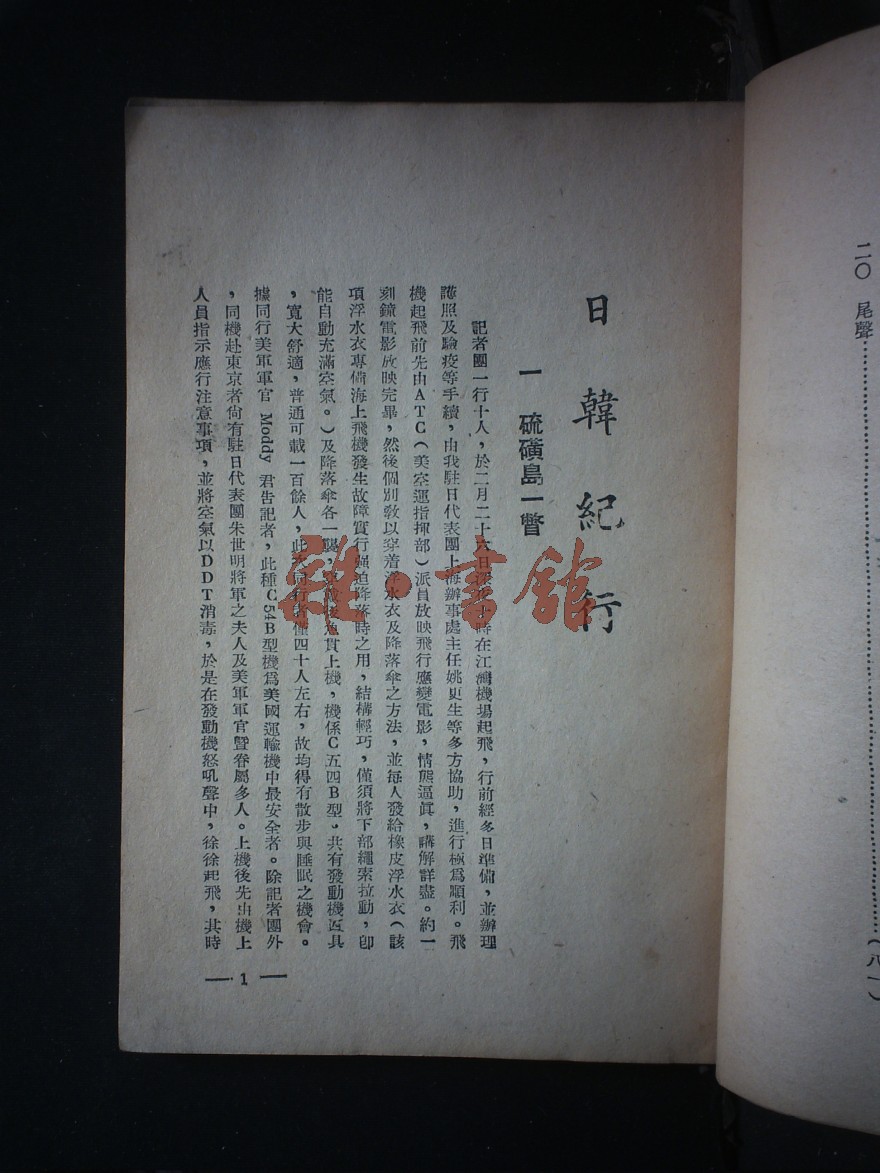 二〇　尾聲……………………………………（八一）
日韓紀行
一　硫磺島一瞥
記者團一行十人，於二月二十六日時在江灣機場起飛，行前經多日準備，並辦理
護照及驗疫等手續，由我駐日代表團上海辦事處主任姚更生等多方協助，進行極爲順利。飛
機起飛前先由ATC（美空運指揮部）派員放映飛行應變電影，情態逼眞，講解詳盡。約一
刻鐘電影放映完畢，然後個別敎以穿着浮水衣及降落傘之方法，並每人發給橡皮浮水衣（該
項浮水衣專備海上飛機發生故障實行強迫降落時之用，結構輕巧，僅須將下部繩索拉動，卽
能自動充滿空氣。）及降落傘各一襲，後魚貫上機，機係C五四B型，共有發動機四具
，寬大舒適，普通可載一百餘人，此次同行者僅四十人左右，故均得有散步與睡眠之機會。
據同行美軍軍官 Moddy 君告記者，此種C54B型機爲美國運輸機中最安全者。除記者團外
，同機赴東京者尙有駐日代表團朱世明將軍之夫人及美軍軍官曁眷屬多人。上機後先由機上
人員指示應行注意事項，並將空氣以DDT消毒，於是在發動機怒吼聲中，徐徐起飛，其時
— 1 —
雜·書館